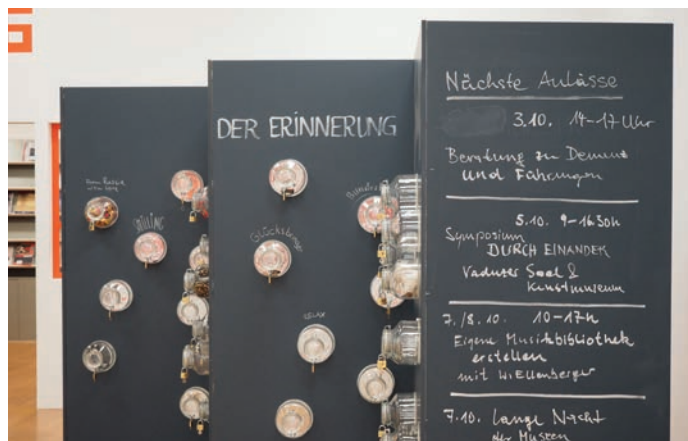 DER ERINNERUNG
Glücksbringer
Nächste Anlässe
3.10. 14–17 Uhr
Beratung zu Demenz
und Führungen
5.10. 9–16.30h
Symposium
DURCH EINANDER
Vaduzer Saal &
Kunstmuseum
7./8.10. 10–17h
Eigene Musikbibliothek
erstellen
mit W. Ellenberger
7.10. Lange Nacht
der Museen